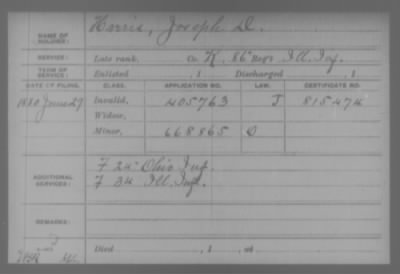 NAME OF SOLDIER: Harris, Joseph D.
SERVICE: Late rank, Co. K, 86" Reg't Ill. Inf.
TERM OF SERVICE: Enlisted , 1 Discharged , 1
DATE OF FILING. CLASS. APPLICATION NO. LAW. CERTIFICATE NO.
1880 June 29 Invalid, 405763 J 815474
Widow,
Minor, 668865 O
F 24" Ohio Inf.
ADDITIONAL SERVICES: F 34 Ill. Inf.
REMARKS:
Died , 1 , at